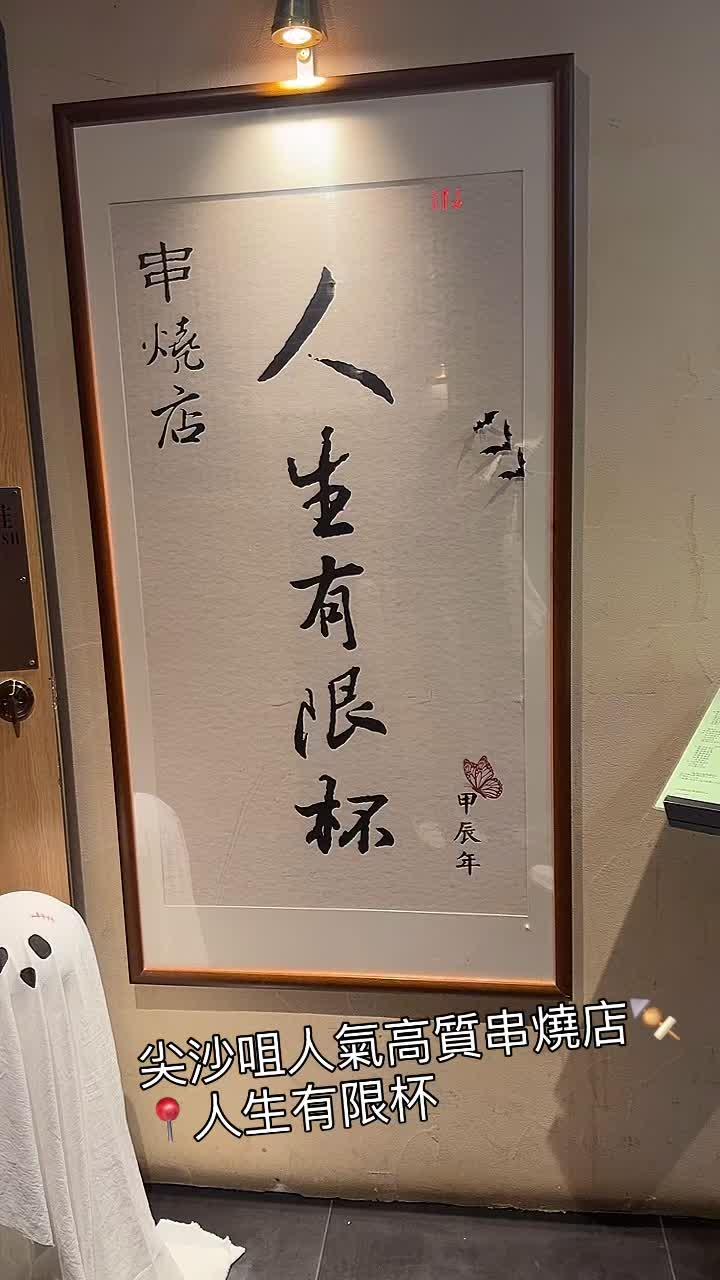 串燒店
人生有限杯
甲辰年
尖沙咀人氣高質串燒店
人生有限杯